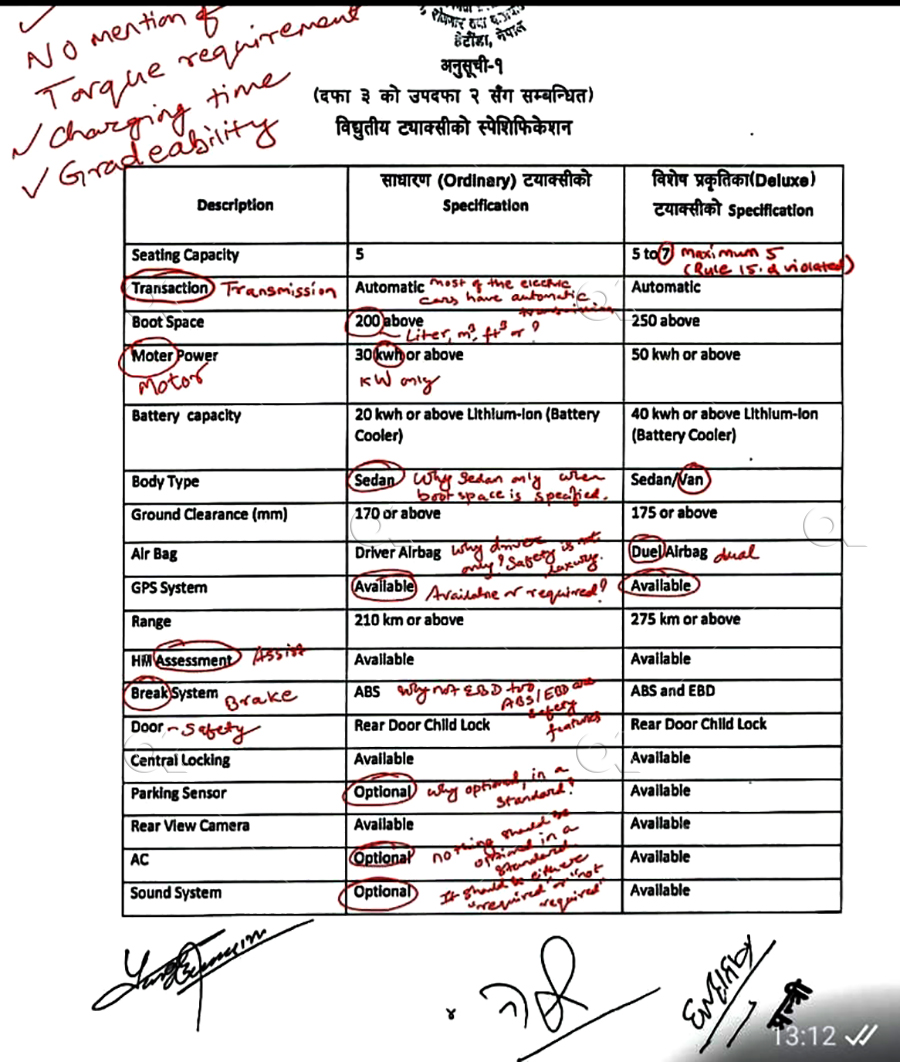 No mention of
Torque requirement
✓ charging time
✓ Gradeability
हेटौंडा, नेपाल
अनुसूची-१
(दफा ३ को उपदफा २ सँग सम्बन्धित)
विद्युतीय ट्याक्सीको स्पेशिफिकेशन
Description
साधारण (Ordinary) टयाक्सीको
Specification
विशेष प्रकृतिका(Deluxe)
टयाक्सीको Specification
Seating Capacity 5 5 to 7 maximum 5
(Rule 15. 2 violated)
Transaction Transmission Automatic most of the electric
cars have automatic
transmission
Automatic
Boot Space 200 above 250 above
Liter, m³, ft³ or ?
Moter Power 30 kwh or above 50 kwh or above
Motor KW only
Battery capacity 20 kwh or above Lithium-Ion (Battery
Cooler)
40 kwh or above Lithium-Ion
(Battery Cooler)
Body Type Sedan Why Sedan only when
boot space is specified.
Sedan/Van
Ground Clearance (mm) 170 or above 175 or above
Air Bag Driver Airbag why driver
only? Safety is not
luxury.
Duel Airbag dual
GPS System Available Available or required? Available
Range 210 km or above 275 km or above
Hill Assessment Assist Available Available
Break System Brake ABS why not EBD too
ABS/EBD are
safety
features
ABS and EBD
Door - Safety Rear Door Child Lock Rear Door Child Lock
Central Locking Available Available
Parking Sensor Optional why optional, in a
standard?
Available
Rear View Camera Available Available
AC Optional nothing should be
optional in a
standard.
Available
Sound System Optional It should be either
"required" or "not
required"
Available
13:12